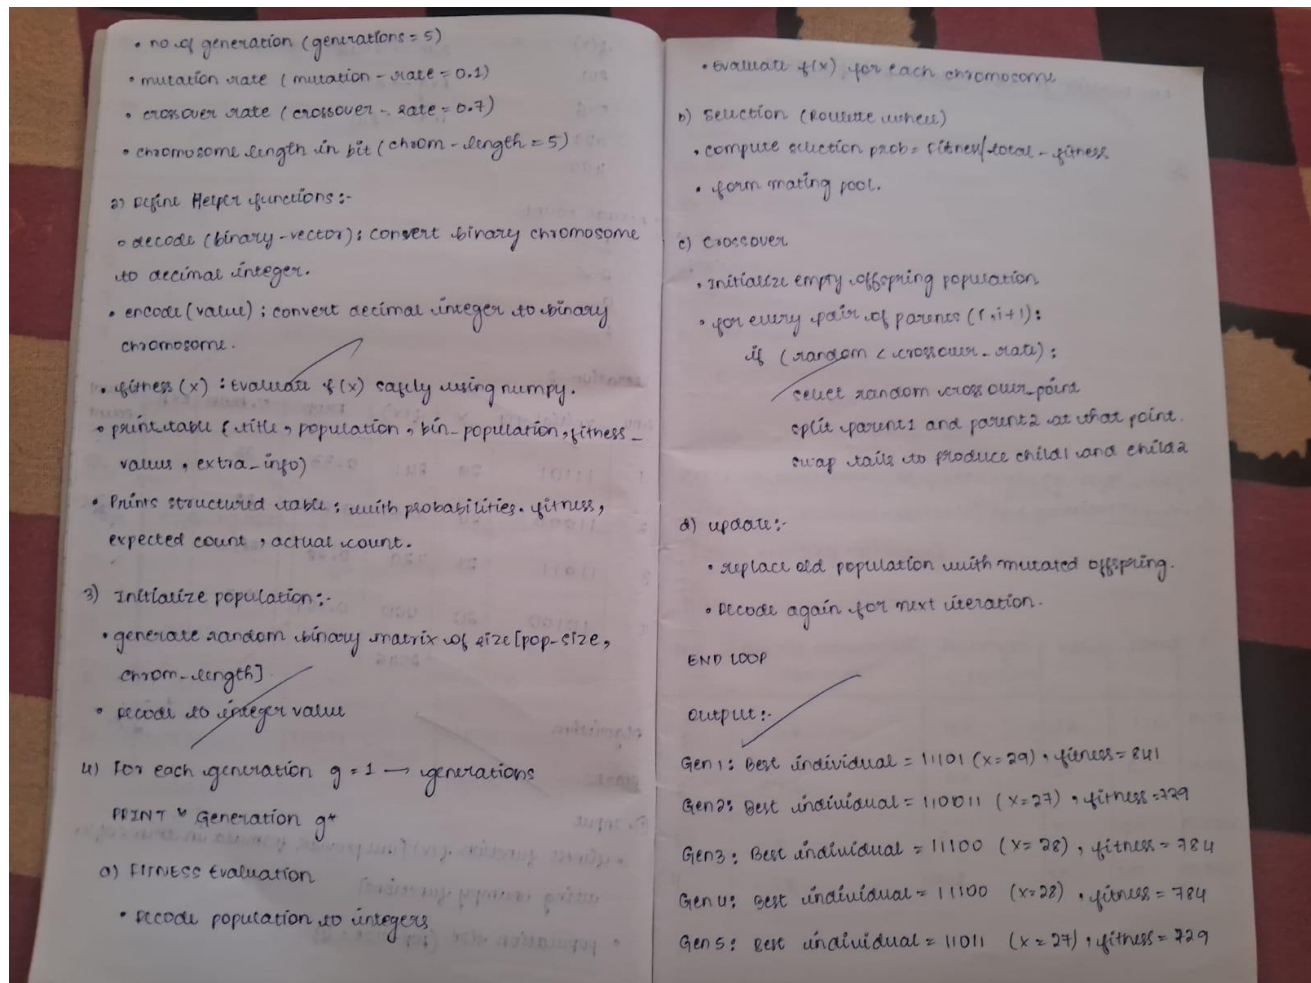 • no. of generation (generations = 5)
• mutation rate (mutation - rate = 0.1)
• crossover rate (crossover - rate = 0.7)
• chromosome length in bit (chrom - length = 5)
2) Define Helper functions:-
• decode (binary-vector): convert binary chromosome
to decimal integer.
• encode (value) : convert decimal integer to binary
chromosome.
• fitness (x) : Evaluate f(x) safely using numpy.
• print table (title, population, bin_population, fitness_
values, extra_info)
• Prints structured table: with probabilities. fitness,
expected count, actual count.
3) Initialize population:-
• generate random binary matrix of size [pop-size,
chrom_length]
• Decode to integer value
4) For each generation g = 1 → generations
PRINT " Generation g"
a) FITNESS Evaluation
• Decode population to integers
• Evaluate f(x) for each chromosome
b) Selection (Roulette wheel)
• compute selection prob = fitness/total-fitness
• form mating pool.
c) Crossover
• Initialize empty offspring population
• for every pair of parents (i, i+1):
if (random < crossover_rate):
select random cross over_point
split parent1 and parent2 at that point.
swap tails to produce child1 and child2
d) update:-
• replace old population with mutated offspring.
• Decode again for next iteration.
END LOOP
Output:-
Gen 1: Best individual = 11101 (x=29), fitness = 841
Gen2: Best individual = 110011 (x=27), fitness =729
Gen3: Best individual = 11100 (x=28), fitness = 784
Gen 4: Best individual = 11100 (x=28), fitness = 784
Gen 5: Best individual = 11011 (x=27), fitness = 729